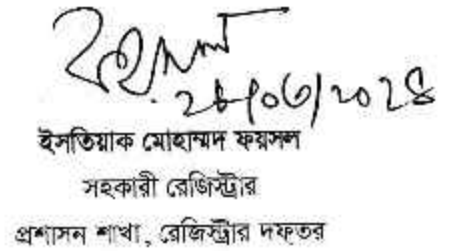 ফয়সল
২৮/০৩/২০২৪
ইসতিয়াক মোহাম্মদ ফয়সল
সহকারী রেজিস্ট্রার
প্রশাসন শাখা, রেজিস্ট্রার দফতর